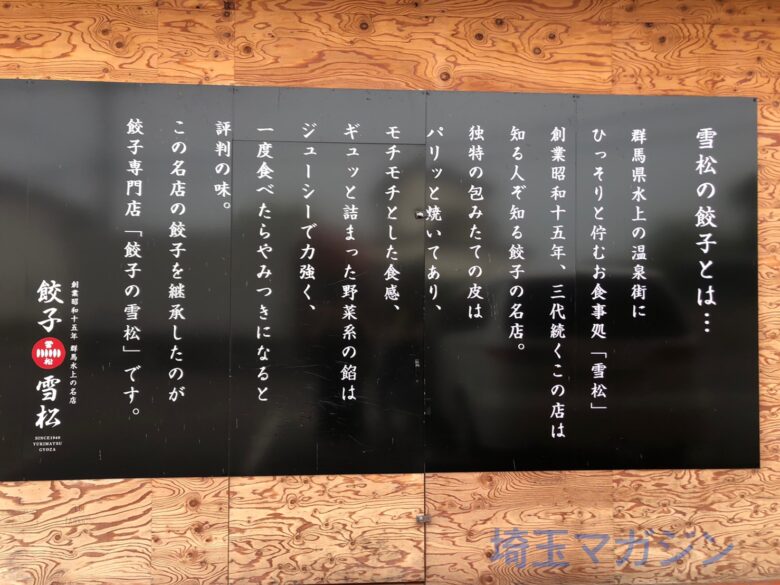 雪松の餃子とは…
群馬県水上の温泉街に
ひっそりと佇むお食事処「雪松」
創業昭和十五年、三代続くこの店は
知る人ぞ知る餃子の名店。
独特の包みたての皮は
パリッと焼いてあり、
モチモチとした食感、
ギュッと詰まった野菜系の餡は
ジューシーで力強く、
一度食べたらやみつきになると
評判の味。
この名店の餃子を継承したのが
餃子専門店「餃子の雪松」です。
創業昭和十五年 群馬水上の名店
餃子
雪松
雪松
SINCE1940
YUKIMATSU
GYOZA
埼玉マガジン